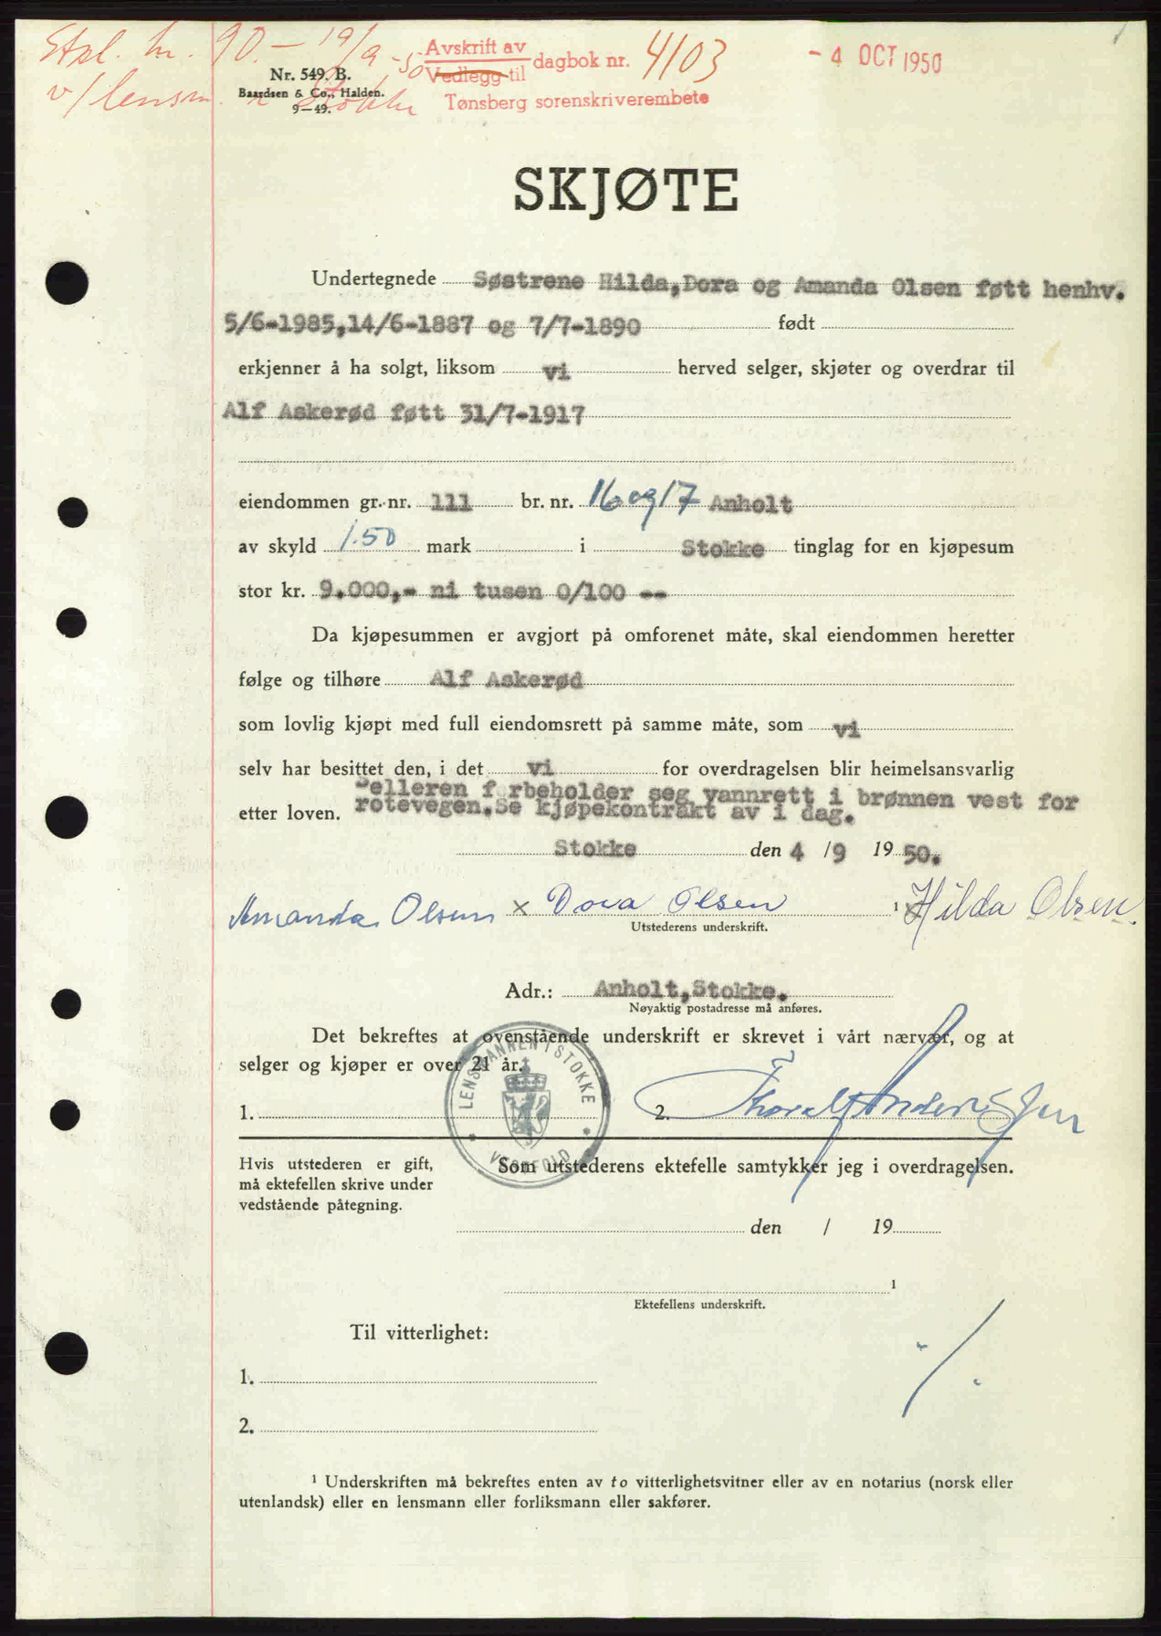 Stpl. kr. 90.- 19/9-50
v/lensm. i Stokke
Nr. 549. B.
Baardsen & Co., Halden.
9—49.
Avskrift av
Vedlegg til dagbok nr. 4103
Tønsberg sorenskriverembete
- 4 OCT 1950
SKJØTE
Undertegnede Søstrene Hilda,Dora og Amanda Olsen født henhv.
5/6-1985,14/6-1887 og 7/7-1890 født
erkjenner å ha solgt, liksom vi herved selger, skjøter og overdrar til
Alf Askerød født 31/7-1917
eiendommen gr. nr. 111 br. nr. 16 og 17 Anholt
av skyld 1.50 mark i Stokke tinglag for en kjøpesum
stor kr. 9.000,- ni tusen 0/100 --
Da kjøpesummen er avgjort på omforenet måte, skal eiendommen heretter
følge og tilhøre Alf Askerød
som lovlig kjøpt med full eiendomsrett på samme måte, som vi
selv har besittet den, i det vi for overdragelsen blir heimelsansvarlig
elleren f rbeholder seg vannrett i brønnen vest for
etter loven. rotevegen.Se kjøpekontrakt av i dag.
Stokke den 4 /9 19 50.
Amanda Olsen x Dora Olsen 1 Hilda Olsen.
Utstederens underskrift.
Adr.: Anholt,Stokke.
Nøyaktig postadresse må anføres.
Det bekreftes at ovenstående underskrift er skrevet i vårt nærvær, og at
selger og kjøper er over 21 år.
LENSMANNEN I STOKKE
* VESTFOLD *
1. 2. Thoralf Anderssen
Hvis utstederen er gift,
må ektefellen skrive under
vedstående påtegning.
Som utstederens ektefelle samtykker jeg i overdragelsen.
den / 19
1
Ektefellens underskrift.
Til vitterlighet:
1.
2.
./.
1 Underskriften må bekreftes enten av to vitterlighetsvitner eller av en notarius (norsk eller
utenlandsk) eller en lensmann eller forliksmann eller sakfører.